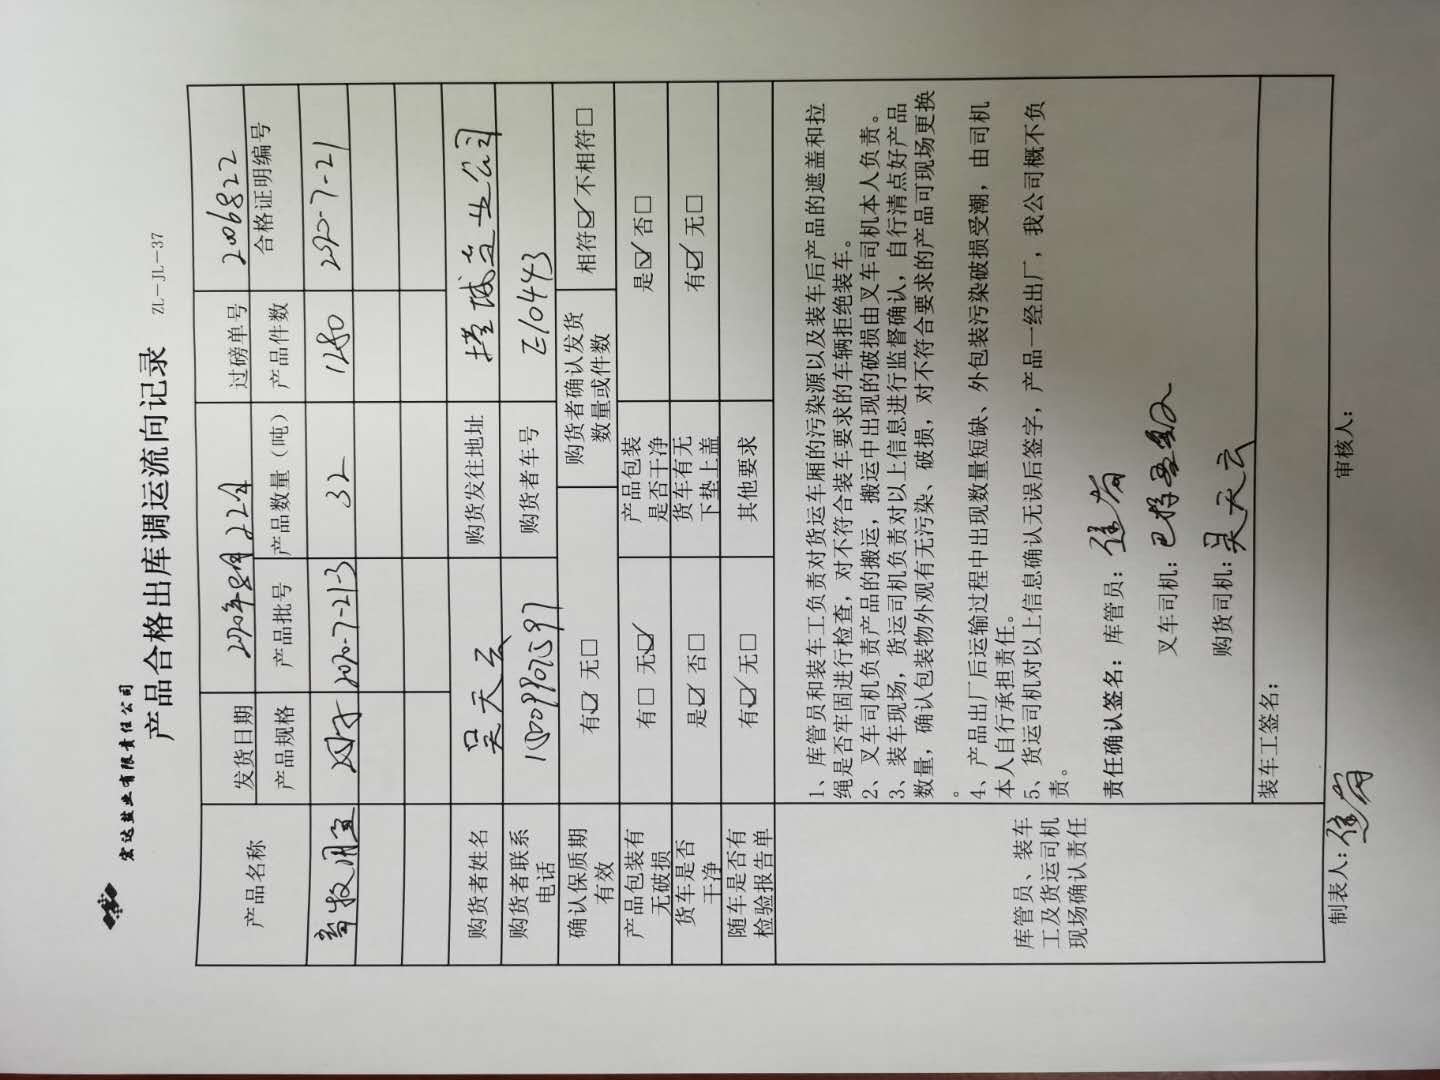 宏达盐业有限责任公司
产品合格出库调运流向记录 ZL-JL-37
产品名称 发货日期 2020年8月22日 过磅单号 2006822
产品规格 产品批号 产品数量（吨） 产品件数 合格证明编号
畜牧用盐 2020-7-21-3 32 1280 2020-7-21
购货者姓名 吴天云 购货发往地址 盐业公司
购货者联系电话 购货者车号 E10443
确认保质期有效 有☑ 无□ 购货者确认发货数量或件数 相符☑ 不相符□
产品包装有无破损 有□ 无☑ 产品包装是否干净 是☑ 否□
货车是否干净 是☑ 否□ 货车有无下垫上盖 有☑ 无□
随车是否有检验报告单 有☑ 无□ 其他要求
库管员、装车工及货运司机现场确认责任
1、库管员和装车工负责对货运车厢的污染源以及装车后产品的遮盖和拉
绳是否牢固进行检查，对不符合装车要求的车辆拒绝装车。
2、叉车司机负责产品的搬运，搬运中出现的破损由叉车司机本人负责。
3、装车现场，货运司机负责对以上信息进行监督确认，自行清点好产品
数量，确认包装物外观有无污染、破损，对不符合要求的产品可现场更换
。
4、产品出厂后运输过程中出现数量短缺、外包装污染破损受潮，由司机
本人自行承担责任。
5、货运司机对以上信息确认无误后签字，产品一经出厂，我公司概不负
责。
责任确认签名：库管员：
叉车司机：
购货司机：吴天云
装车工签名：
制表人： 审核人：